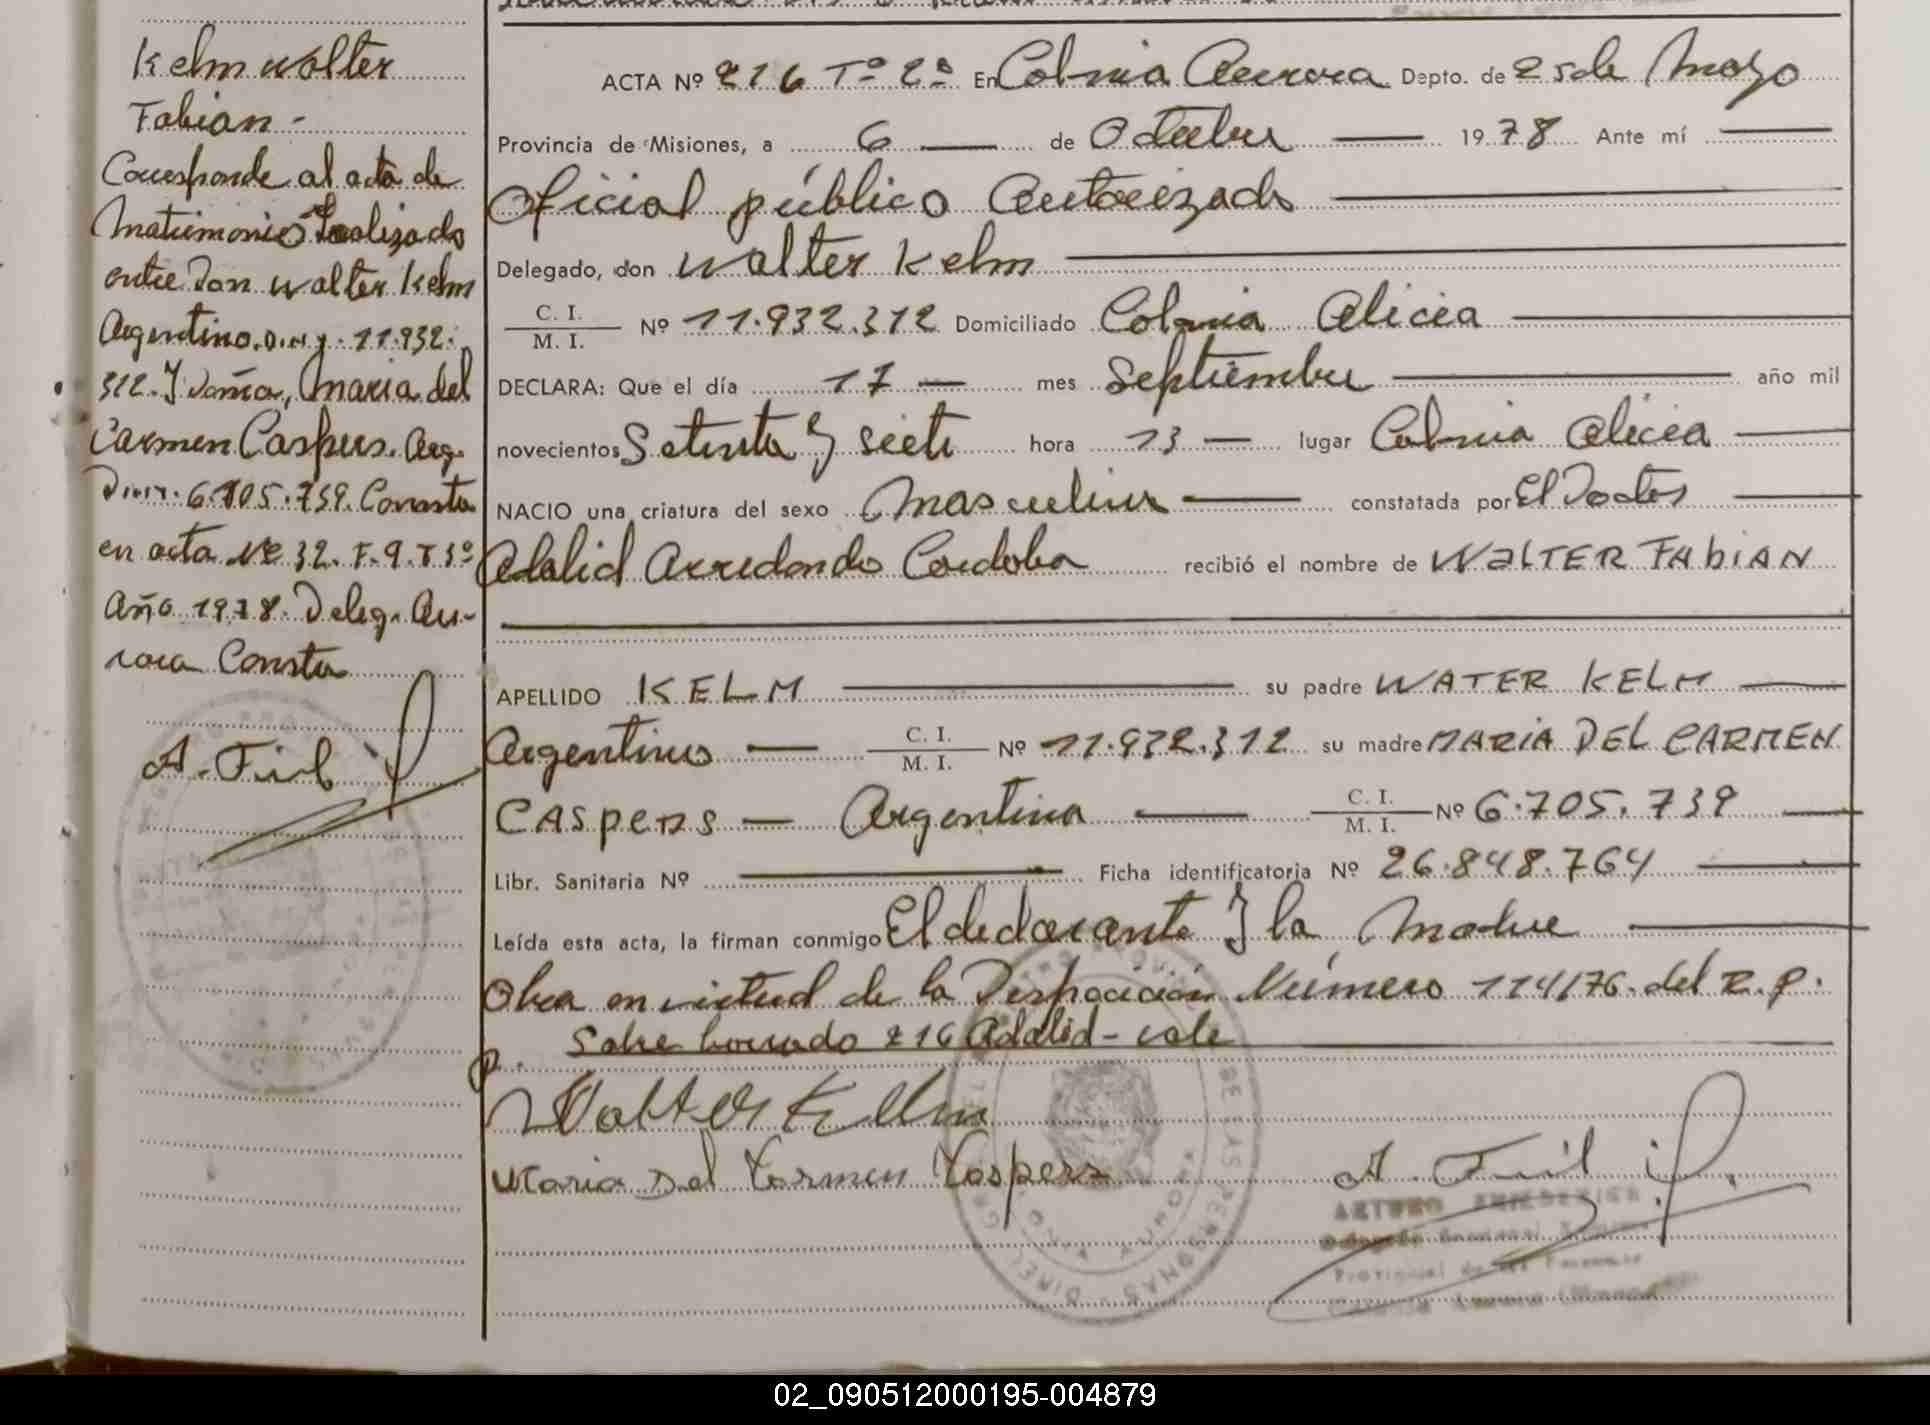 Kelm Walter
Fabian -
Corresponde al acta de
Matrimonio Realizado
entre Don Walter Kelm
Argentino. D.N.I. 11.932.
312. Y doña, Maria del
Carmen Caspers. Arg.
D.N.I. 6.705.739. Consta
en acta Nº 32. F. 9. Tº 3º
Año 1978. Deleg. Au-
rora Consta
ACTA Nº 216 Tº 2º En Colonia Aurora Depto. de 25 de Mayo
Provincia de Misiones, a 6 de Octubre 1978 Ante mí
Oficial público Autorizado
Delegado, don Walter Kelm
C. I.
M. I. Nº 11.932.312 Domiciliado Colonia Alicia
DECLARA: Que el día 17 mes Septiembre año mil
novecientos Setenta y siete hora 13 lugar Colonia Alicia
NACIO una criatura del sexo Masculino constatada por El Doctor
Adalid Arredondo Cordoba recibió el nombre de WALTER FABIAN
APELLIDO KELM su padre WATER KELM
Argentino C. I.
M. I. Nº 11.932.312 su madre MARIA DEL CARMEN
CASPERS Argentina C. I.
M. I. Nº 6.705.739
Libr. Sanitaria Nº Ficha identificatoria Nº 26.848.764
Leída esta acta, la firman conmigo El declarante Y la Madre
Obra en virtud de la Disposición Número 114/76. del R.P.
P. Sobre borrado 216 Adalid - vale
Walter Kelm
Maria Del Carmen Caspers
ARTURO
02_090512000195-004879